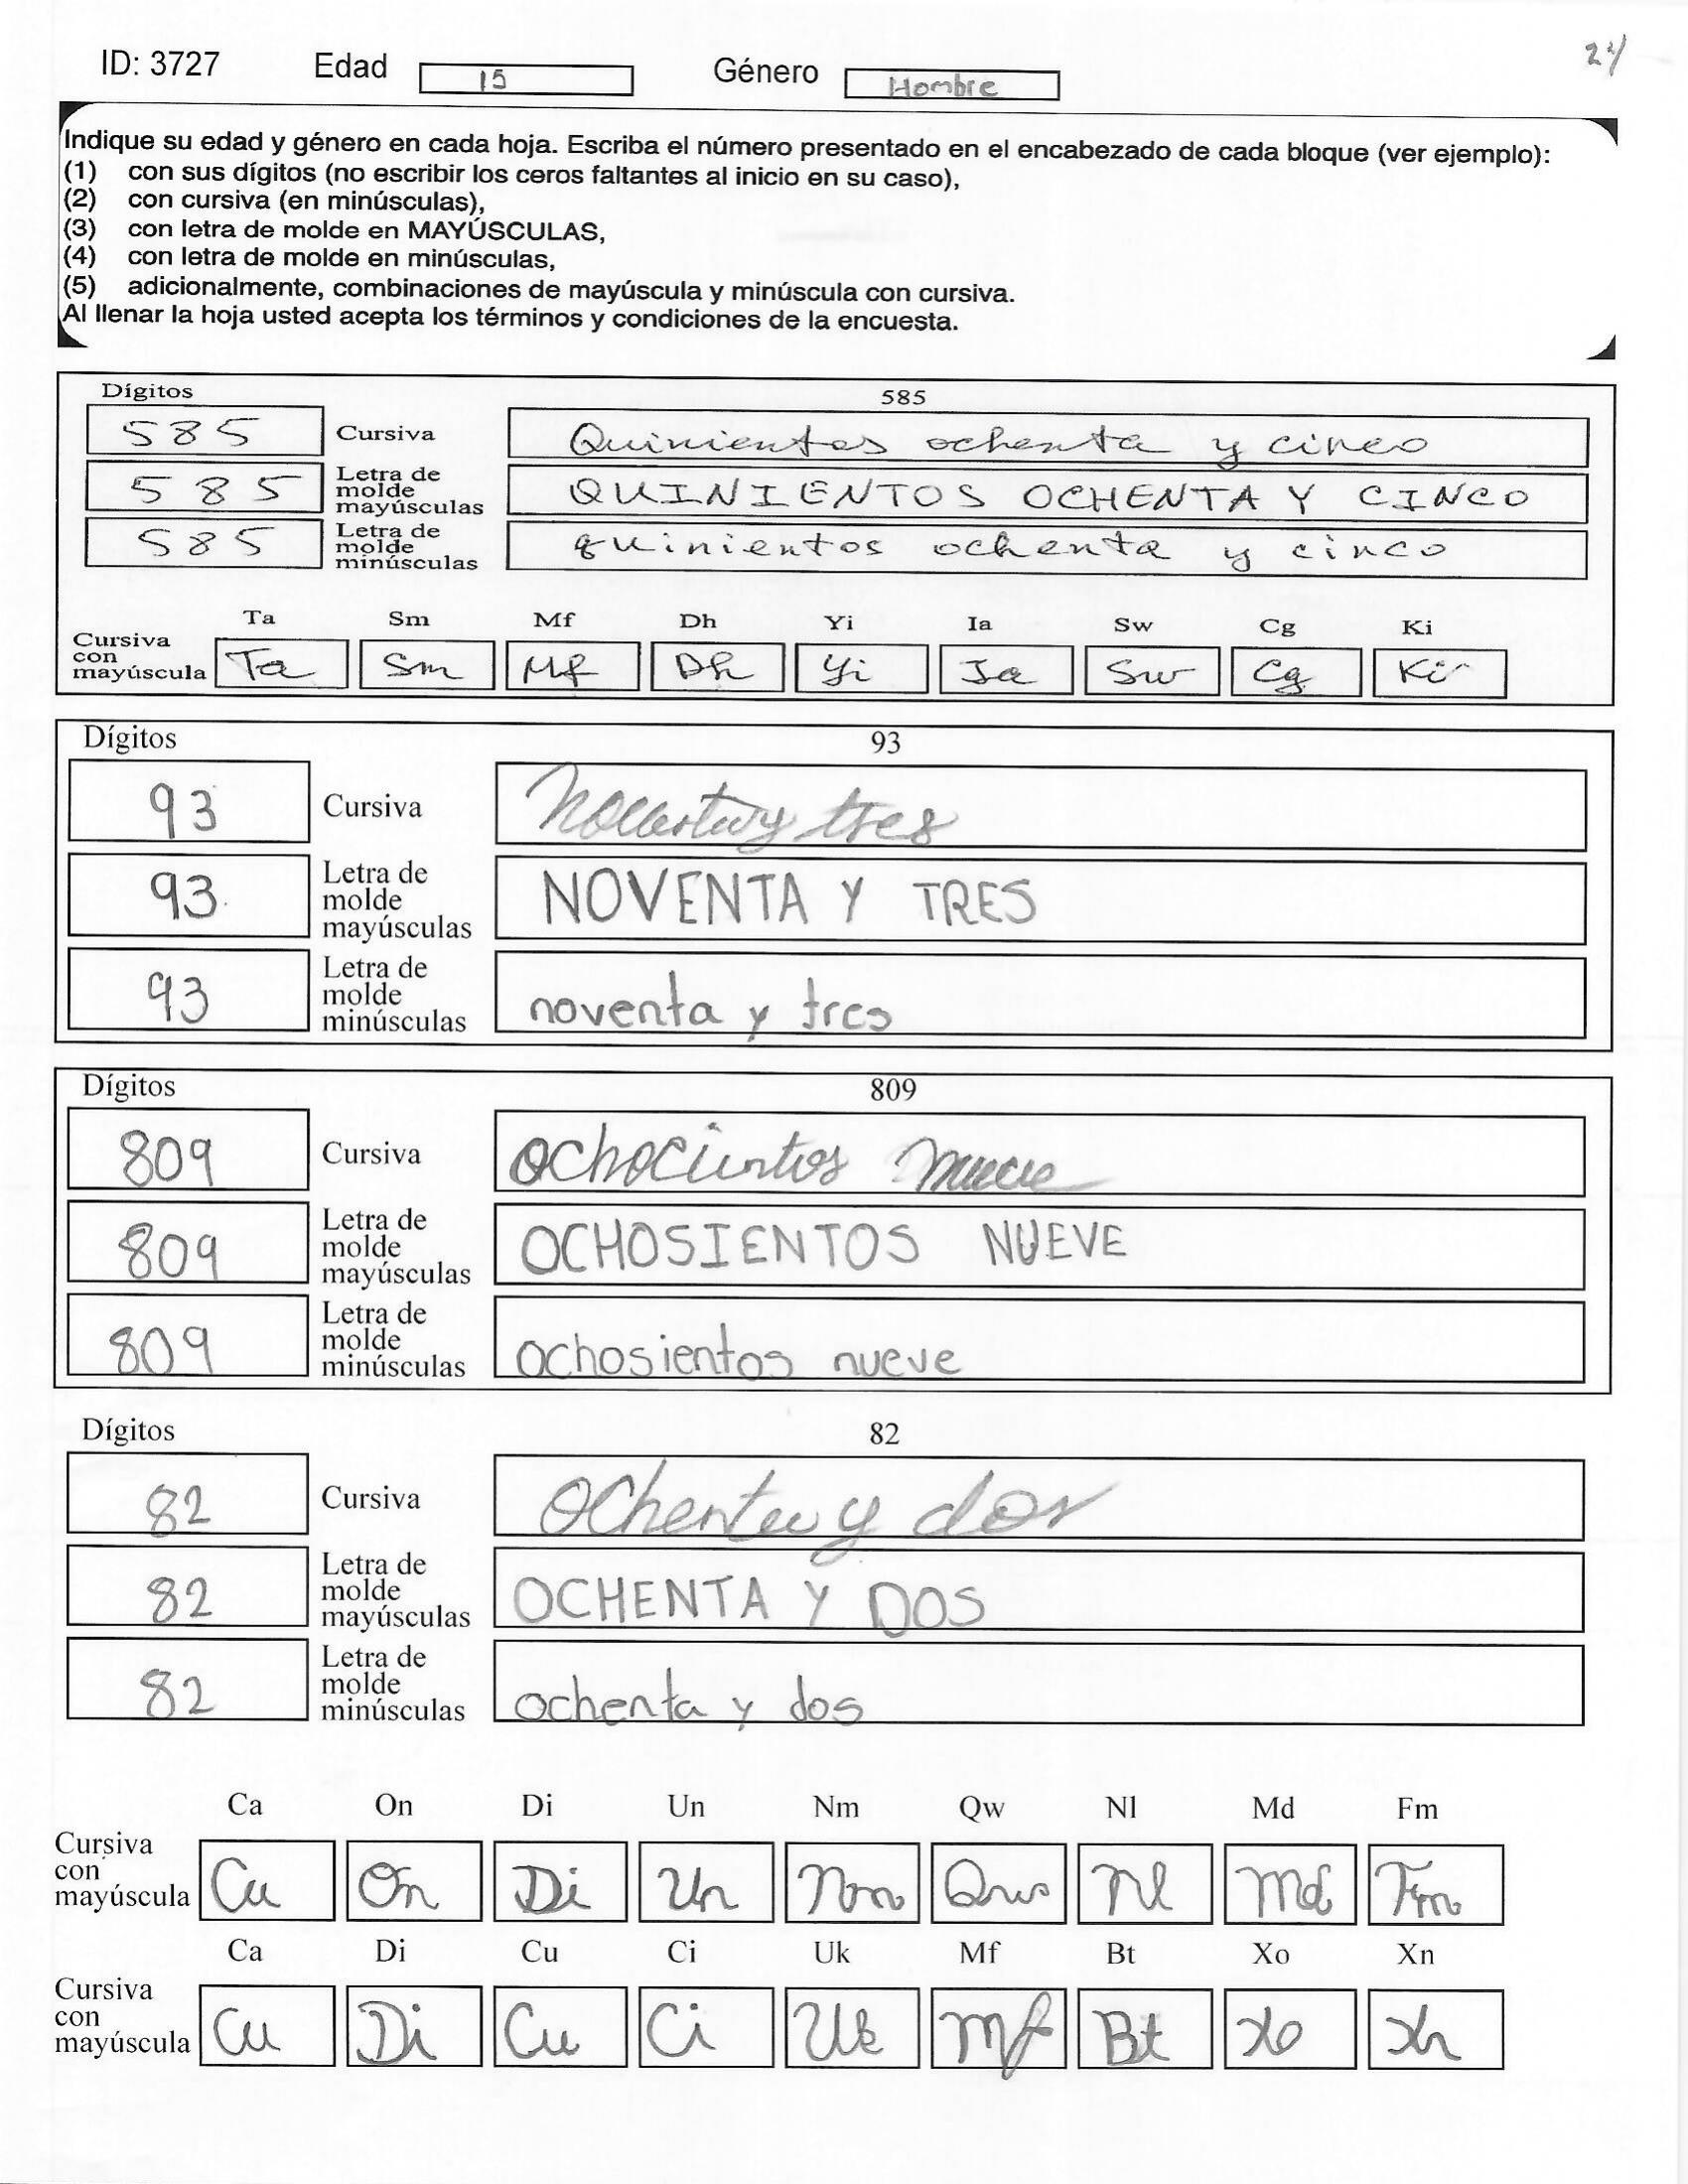 ID: 3727 Edad 15 Género Hombre
Indique su edad y género en cada hoja. Escriba el número presentado en el encabezado de cada bloque (ver ejemplo):
(1) con sus dígitos (no escribir los ceros faltantes al inicio en su caso),
(2) con cursiva (en minúsculas),
(3) con letra de molde en MAYÚSCULAS,
(4) con letra de molde en minúsculas,
(5) adicionalmente, combinaciones de mayúscula y minúscula con cursiva.
Al llenar la hoja usted acepta los términos y condiciones de la encuesta.
Dígitos 585
585 Cursiva Quinientos ochenta y cinco
585 Letra de molde mayúsculas QUINIENTOS OCHENTA Y CINCO
585 Letra de molde minúsculas quinientos ochenta y cinco
Ta Sm Mf Dh Yi Ia Sw Cg Ki
Cursiva con mayúscula Ta Sm Mf Dh Yi Ia Sw Cg Ki
Dígitos 93
93 Cursiva Noventa y tres
93 Letra de molde mayúsculas NOVENTA Y TRES
93 Letra de molde minúsculas noventa y tres
Dígitos 809
809 Cursiva ochocientos nueve
809 Letra de molde mayúsculas OCHOSIENTOS NUEVE
809 Letra de molde minúsculas ochosientos nueve
Dígitos 82
82 Cursiva Ochenta y dos
82 Letra de molde mayúsculas OCHENTA Y DOS
82 Letra de molde minúsculas ochenta y dos
Ca On Di Un Nm Qw Nl Md Fm
Cursiva con mayúscula Ca On Di Un Nm Qw Nl Md Fm
Ca Di Cu Ci Uk Mf Bt Xo Xn
Cursiva con mayúscula Ca Di Cu Ci Uk Mf Bt Xo Xn